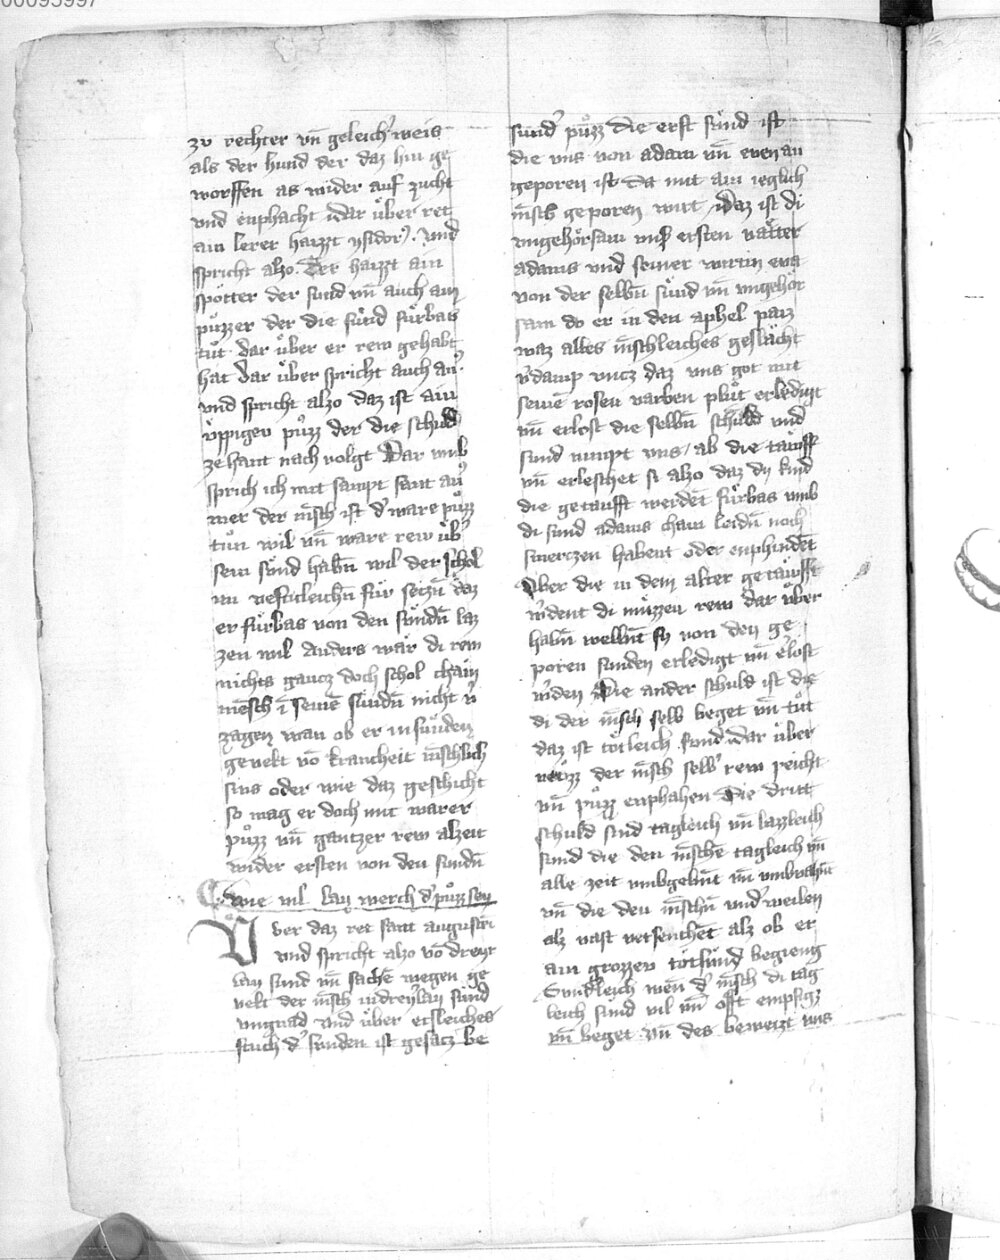 00095997
zu rechter vn̄ geleicher weis
als der hund der daz hin ge
worffen as wider auf zucht
vnd enphacht idar uͤber ret
ain lerer haizzt ysidor⁹. vnd
spricht alzo. Der haizzt ain
spötter der sund vn̄ auch ain
puͤzzer der die suͤnd fuͤrbas
tuͤt dar uͤber er rew gehabt
hat dar uͤber spricht auch au⁹
vnd spricht alzo daz ist ain
uͤppigev puͤzz der die schuld
zehant nach volgt Dar vmb
sprich ich mit sampt sant au⁹
wer der mēsch ist d' ware puͤzz
tuͦn wil vn̄ ware rew uͤb'
sein suͤnd habn̄ wil der schol
im vestichleichn̄ fuͤr setzn̄ daz
er fuͤrbas von den suͤndn̄ laz
zen wil Anders wär di rew
nichts gancz doch schol chain
mensch ī seinē suͤndn̄ nicht v'
zagen wan ob er in suͤnden
gevelt vō krancheit mēschlich
sins oder wie daz geschicht
so mag er doch mit warer
puͤzz vn̄ gantzer rew alzeit
wider ersten von den sundn̄
wie vil lay werch d' puͤzz sey
Vber daz ret sant augustin
vnd spricht alzo vō dreyr
lay sund vn̄ sachē wegen ge
velt der mēsch in dreylay sund
vngnad vnd uͤber etsleiches
stuch d' sunden ist gesatz be
sund' puͤzz die erst suͤnd ist
die vns von adam vn̄ even an
geporen ist da mit ain ieglich
mēsch geporen wirt idaz ist di
vngehörsam vns' ersten vätter
adams vnd seiner wirtin eva
von der selbn̄ suͤnd vn̄ vngehör
sam do er in den aphel paiz
waz alles mēschleiches geslächt
v'damp vncz daz vns got mit
seinē rosen varben pluͤt erledigt
vn̄ erlost die selbn̄ schuld vnd
sund nimpt vns ab die tauff
vn̄ erleschet si alzo daz dy kind
die getaufft werdēt fuͤrbas vmb
di sund adams chain leidn̄ noch
smerczen habent oder enphindēt
Aber die in dem alter getaufft
w'dent di muͤzzen rew dar uͤber
habn̄ wellnt sy von den ge
poren sunden erledigt vn̄ erlost
w'den Die ander schuld ist die
di der mēsch selb beget vn̄ tuͦt
daz ist totleich sund dar uͤber
muͤzz der mēsch selb' rew peicht
vn̄ puͤzz enphahen Die dritt
schuld sind tagleich vn̄ lazzleich
sund die den mēschē tagleich vn̄
alle zeit vmbgebn̄t vn̄ vmbvahn̄t
vn̄ die den mēschn̄ vnd'weilen
alz vast versenchēt alz ob er
ain grozzev totsuͤnd begieng
Sundleich wen d' mēsch di tag
leich suͤnd vil vn̄ offt empsigz
vn̄ beget vn̄ des beweizt vns